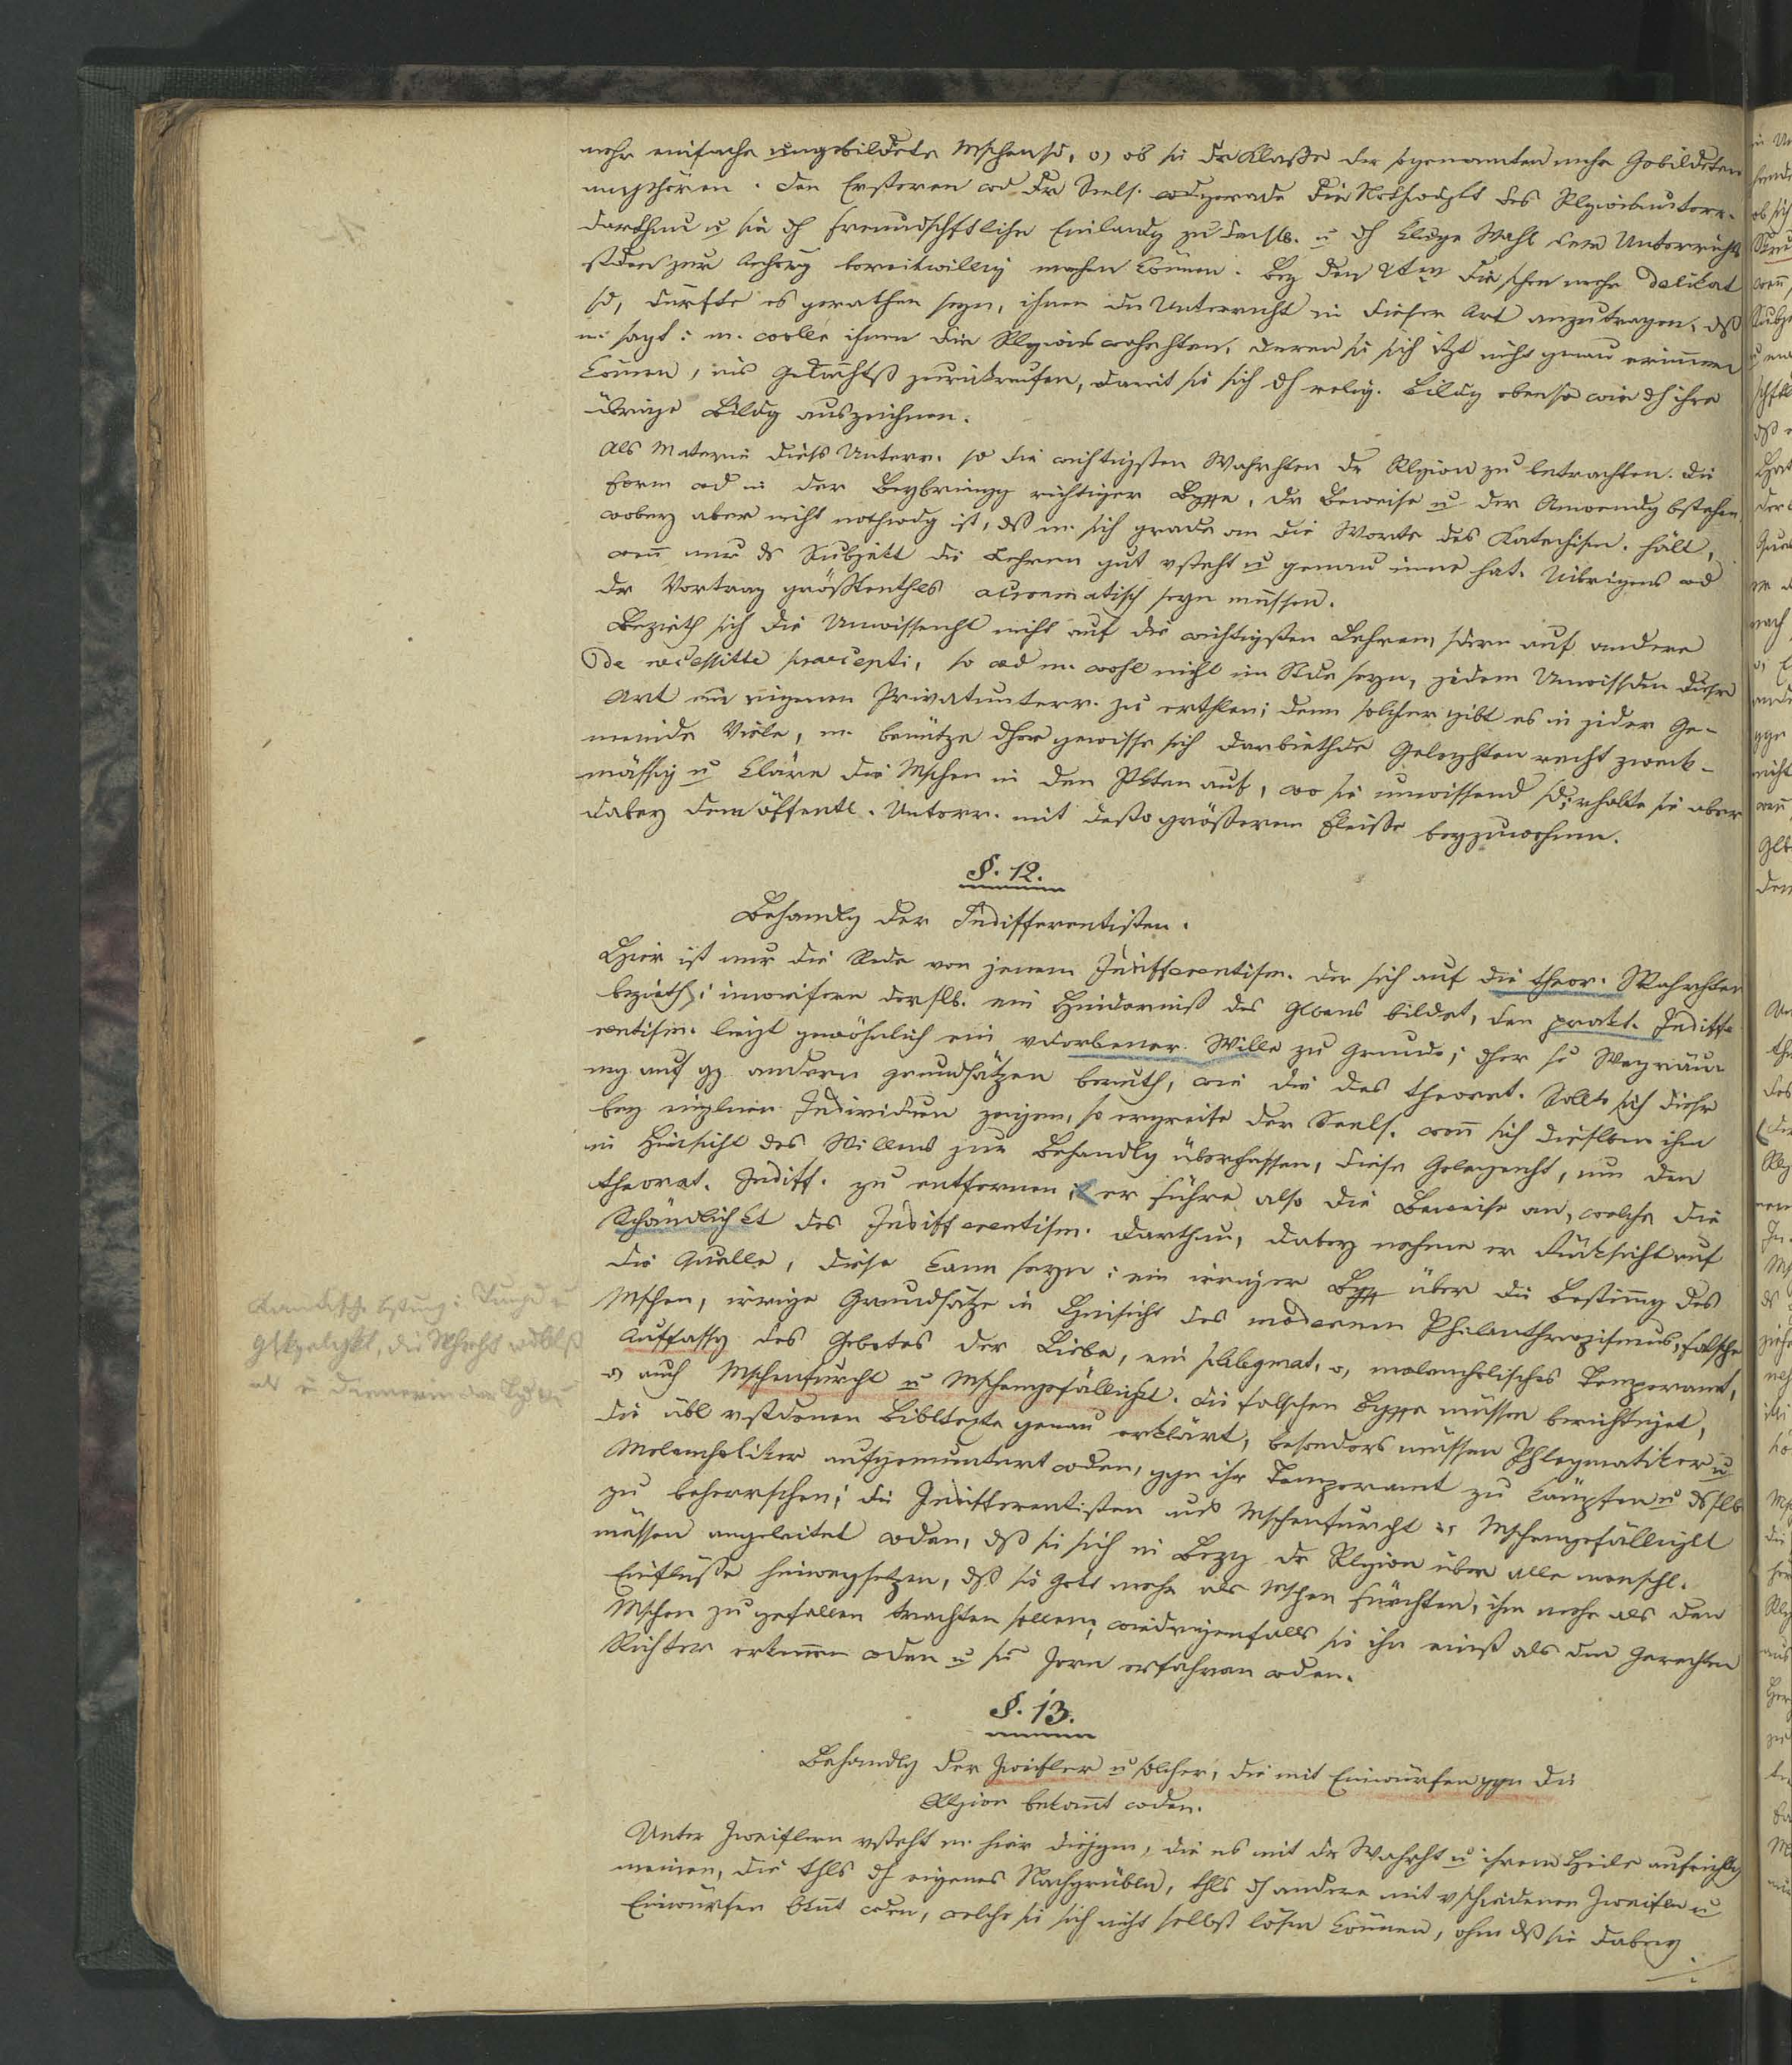 mehr einfache ungebildete Mschen sd, o, ob sie dr Klaße der sogenannten mehr Gebildeten
angehören. Den Ersteren wd dr Seels. wd gerade die Nothwdgkt des Rlgionsunterr.
darthun u sie dh freundschftliche Einladg zu demslb. u dh kluge Wahl dem Unterrichts
stden zur Anhörg bereitwillig machen können. Bey den 2ten die schon mehr delikat
sd, dürfte es gerathen seyn, ihnen den Unterricht in dieser Art anzutragen, dß
m. sagt: m. wolle ihnen die Rlgionswahrhten, deren sie sich itzt nicht genau erinnern
können, ins Gedächtß zurückrufen, damit sie sich dh relig. Bildg ebenso wie dh ihre
übrige Bildg auszeichnen.
Als Materie dieses Unterr. sd die wichtigsten Wahrhten dr Rlgion zu betrachten. Die
Form wd in der Beybringg richtiger Bgffe, dr Beweise u der Anwendg bstehen,
wobey aber nicht nothwdg ist, dß m. sich grade an die Worte des Katechism. hält,
wen nur ds Subjekt die Lehren gut vsteht u genau inne hat. Uibrigens wd
dr Vortrag größtenthls acroamatisch seyn müssen.
Bezieht sich die Unwissenht nicht auf die wichtigsten Lehren, sdern auf andere
de necessitte praecepti, so wd m. wohl nicht im Stde seyn, jedem Unwissden dieser
Art ein eigenen Privatunterr. zu erthlen; denn solcher gibt es in jeder Ge-
meinde Viele, m. benütze dher gewisse sich darbiethde Gelegnhten recht zweck-
mässig u kläre die Mschen in den Pkten auf, wo sie unwissend sd; erhalte sie aber
dabey dem öffentl. Unterr. mit desto größerem Fleiße beyzuwohnen.
§. 12.
Behandlg der Indifferentisten.
Hier ist nur die Rede von jenem Indifferentism. der sich auf die theor. Wahrhten
bezieth; inwiefern derslb. ein Hinderniß des Glbens bildet, den prakt. Indiffe
rentism. liegt gewöhnlich ein vdorbener Wille zu Grunde; dher se Wegräu-
mg auf gz andern Grundsätzen beruth, wie die des theoret. Sollte sich dieser
bey einzlnen Individuen zeigen, so ergreife der Seels. wen sich dieselben ihm
in Hinsicht des Willens zur Behandlg überlassen, diese Gelegenht, um den
theoret. Indiff. zu entfernen; er führe also die Beweise an, welche die
Schändlichkt des Indifferentism. darthun, dabey nehme er Rücksicht auf
die Quelle, diese kann seyn: ein irriger Bgff über die Bestimg des
Mschen, irrige Grundsätze in Hinsicht des modernen Philanthropismus, falsche
Auffassg des Gebotes der Liebe, ein phlegmat. o, melancholisches Temperamt,
o, auch Mschenfurcht u Mschengefälligkt. Die falschen Bgffe müssen berichtiget,
die übl vstdenen Bibltexte genau erklärt, besonders müssen Phlegmatiker u
Melancholiker aufgemuntert wden, ggn ihr Temperamt zu kämpfen u dsslb
zu beherrschen; die Indifferentisten aus Mschenfurcht u Mschengefälligkt
müssen angeleitet wden, dß sie sich in Bezg dr Rlgion über alle menschl.
Einflüsse hinwegsetzen, dß sie Gott mehr als Mschen fürchten, ihm mehr als den
Mschen zu gefallen trachten sollen; wiedrigenfalls sie ihn einst als den Gerechten
Richter erkennen wden u sn Zorn erfahren wden.
§. 13.
Behandlg der Zweifler u solcher, die mit Einwürfen ggn die
Rlgion bekamt wden.
Unter Zweiflern vsteht m. hier diejgen, die es mit dr Wahrht u ihrem Heile aufrichtig
meinen, die thls dh eigenes Nachgrübln, thls dh andere mit vschiedenen Zweifln u
Einwürfen bknt wden, welche sie sich nicht selbst lösen können, ohne dß sie dabey